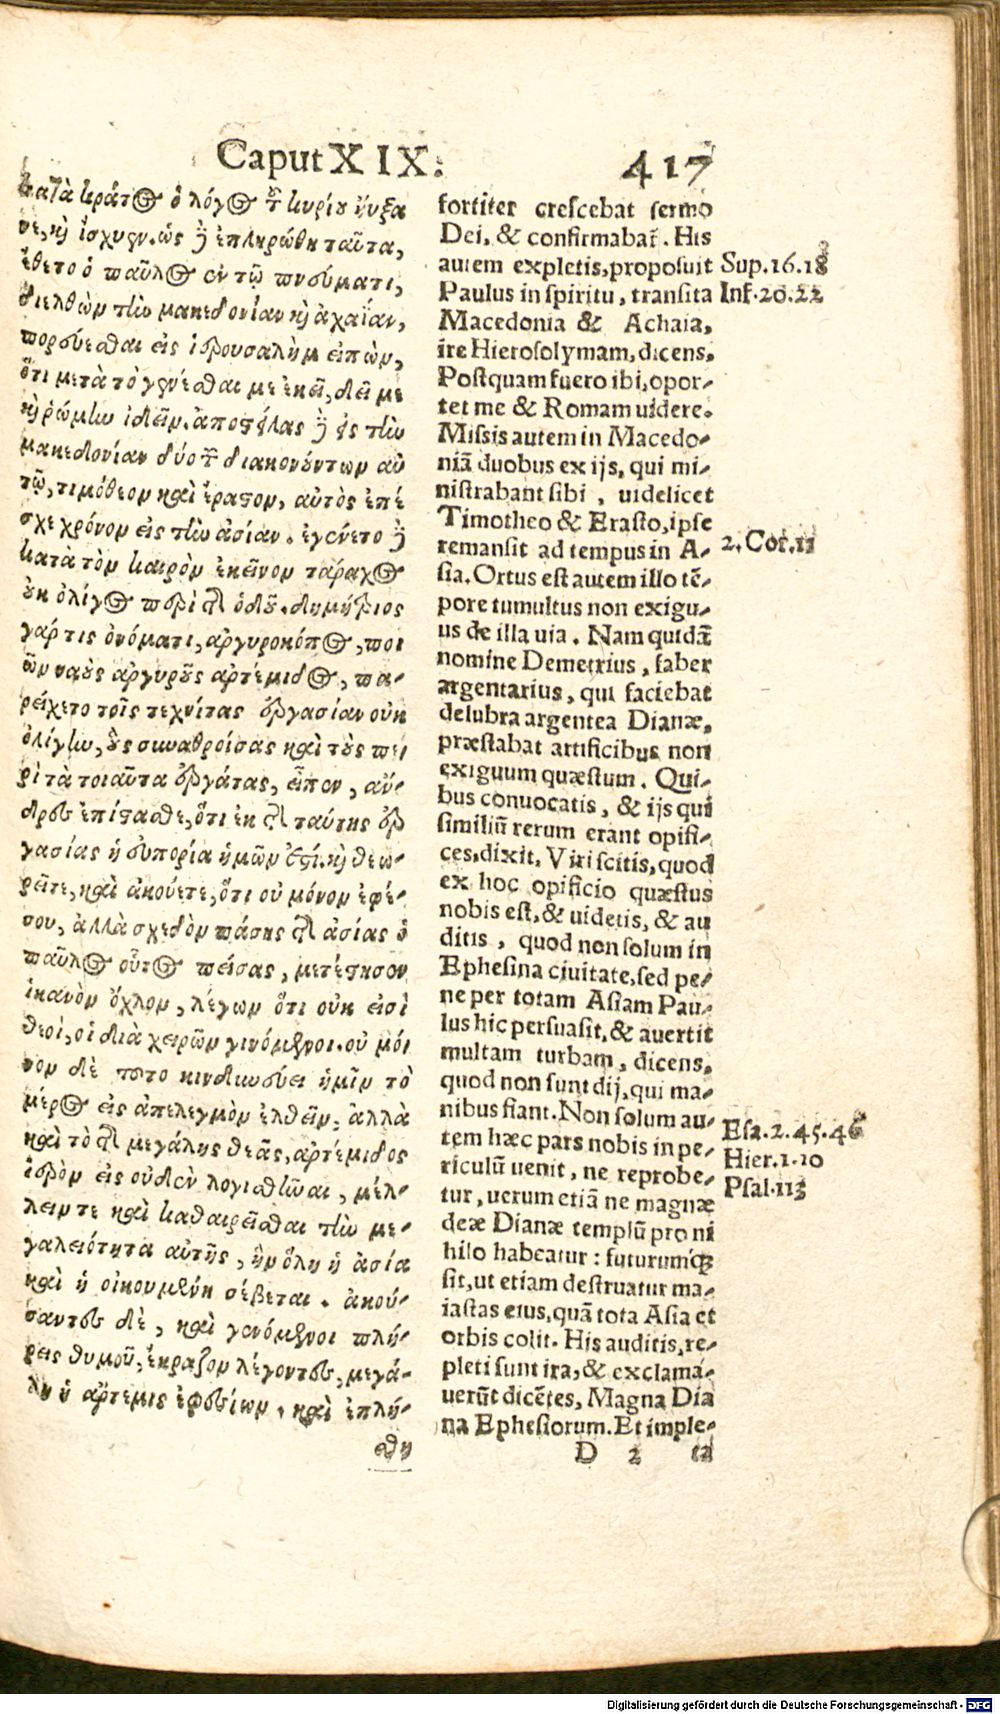 Caput XIX. 417
κατὰ κράτος ὁ λόγος τοῦ κυρίου ηὔξα
νε, καὶ ἴσχυεν. ὡς δὲ ἐπληρώθη ταῦτα,
ἔθετο ὁ παῦλος ἐν τῷ πνεύματι,
διελθὼν τὴν μακεδονίαν καὶ ἀχαΐαν,
πορεύεσθαι εἰς ἱερουσαλὴμ εἰπὼν,
ὅτι μετὰ τὸ γενέσθαι με ἐκεῖ, δεῖ με
καὶ ῥώμην ἰδεῖν. ἀποστείλας δὲ εἰς τὴν
μακεδονίαν δύο τῶν διακονούντων αὐ
τῷ, τιμόθεον καὶ ἔραστον, αὐτὸς ἐπέ
σχε χρόνον εἰς τὴν ἀσίαν. ἐγένετο δὲ
κατὰ τὸν καιρὸν ἐκεῖνον τάραχος
οὐκ ὀλίγος περὶ τῆς ὁδοῦ. δημήτριος
γάρ τις ὀνόματι, ἀργυροκόπος, ποι
ῶν ναοὺς ἀργυροῦς ἀρτέμιδος, πα-
ρείχετο τοῖς τεχνίταις ἐργασίαν οὐκ
ὀλίγην, οὓς συναθροίσας καὶ τοὺς πε
ρὶ τὰ τοιαῦτα ἐργάτας, εἶπεν, ἄν-
δρες ἐπίστασθε, ὅτι ἐκ ταύτης τῆς ἐρ
γασίας ἡ εὐπορία ἡμῶν ἐστί. καὶ θεω-
ρεῖτε, καὶ ἀκούετε, ὅτι οὐ μόνον ἐφέ-
σου, ἀλλὰ σχεδὸν πάσης τῆς ἀσίας ὁ
παῦλος οὗτος πείσας, μετέστησεν
ἱκανὸν ὄχλον, λέγων ὅτι οὐκ εἰσὶ
θεοὶ, οἱ διὰ χειρῶν γινόμενοι. οὐ μόι
νον δὲ τοῦτο κινδυνεύει ἡμῖν τὸ
μέρος εἰς ἀπελεγμὸν ἐλθεῖν, ἀλλὰ
καὶ τὸ τῆς μεγάλης θεᾶς, ἀρτέμιδος
ἱερὸν εἰς οὐδὲν λογισθῆναι, μέλ-
λειν τε καὶ καθαιρεῖσθαι τὴν με-
γαλειότητα αὐτῆς, ἣν ὅλη ἡ ἀσία
καὶ ἡ οἰκουμένη σέβεται. ἀκού-
σαντες δὲ, καὶ γενόμενοι πλή-
ρεις θυμοῦ, ἔκραζον λέγοντες, μεγά-
λη ἡ ἄρτεμις ἐφεσίων. καὶ ἐπλή-
σθη
fortiter crescebat sermo
Dei, & confirmabat̃. His
autem expletis, proposuit
Paulus in spiritu, transita
Macedonia & Achaia,
ire Hierosolymam, dicens,
Postquam fuero ibi, opor-
tet me & Romam uidere.
Missis autem in Macedo-
niã duobus ex ijs, qui mi-
nistrabant sibi, uidelicet
Timotheo & Erasto, ipse
remansit ad tempus in A-
sia. Ortus est autem illo tẽ-
pore tumultus non exigu-
us de illa uia. Nam quidã
nomine Demetrius, faber
argentarius, qui faciebat
delubra argentea Dianæ,
præstabat artificibus non
exiguum quæstum. Qui-
bus conuocatis, & ijs qui
similiũ rerum erant opifi-
ces, dixit, Viri scitis, quod
ex hoc opificio quæstus
nobis est, & uidetis, & au
ditis, quod non solum in
Ephesina ciuitate, sed pe-
ne per totam Asiam Pau-
lus hic persuasit, & auertit
multam turbam, dicens,
quod non sunt dij, qui ma-
nibus fiant. Non solum au-
tem hæc pars nobis in pe-
riculũ uenit, ne reprobe-
tur, uerum etiã ne magnæ
deæ Dianæ templũ pro ni
hilo habeatur: futurumq́;
sit, ut etiam destruatur ma-
iastas eius, quã tota Asia et
orbis colit. His auditis, re-
pleti sunt ira, & exclamá-
uerũt dicẽtes, Magna Dia
na Ephesiorum. Et imple-
D 2 ta
Sup.16.18
Inf.20.22
2.Cor.11
Esa.2.45.46
Hier.1.10
Psal.113
Digitalisierung gefördert durch die Deutsche Forschungsgemeinschaft - DFG